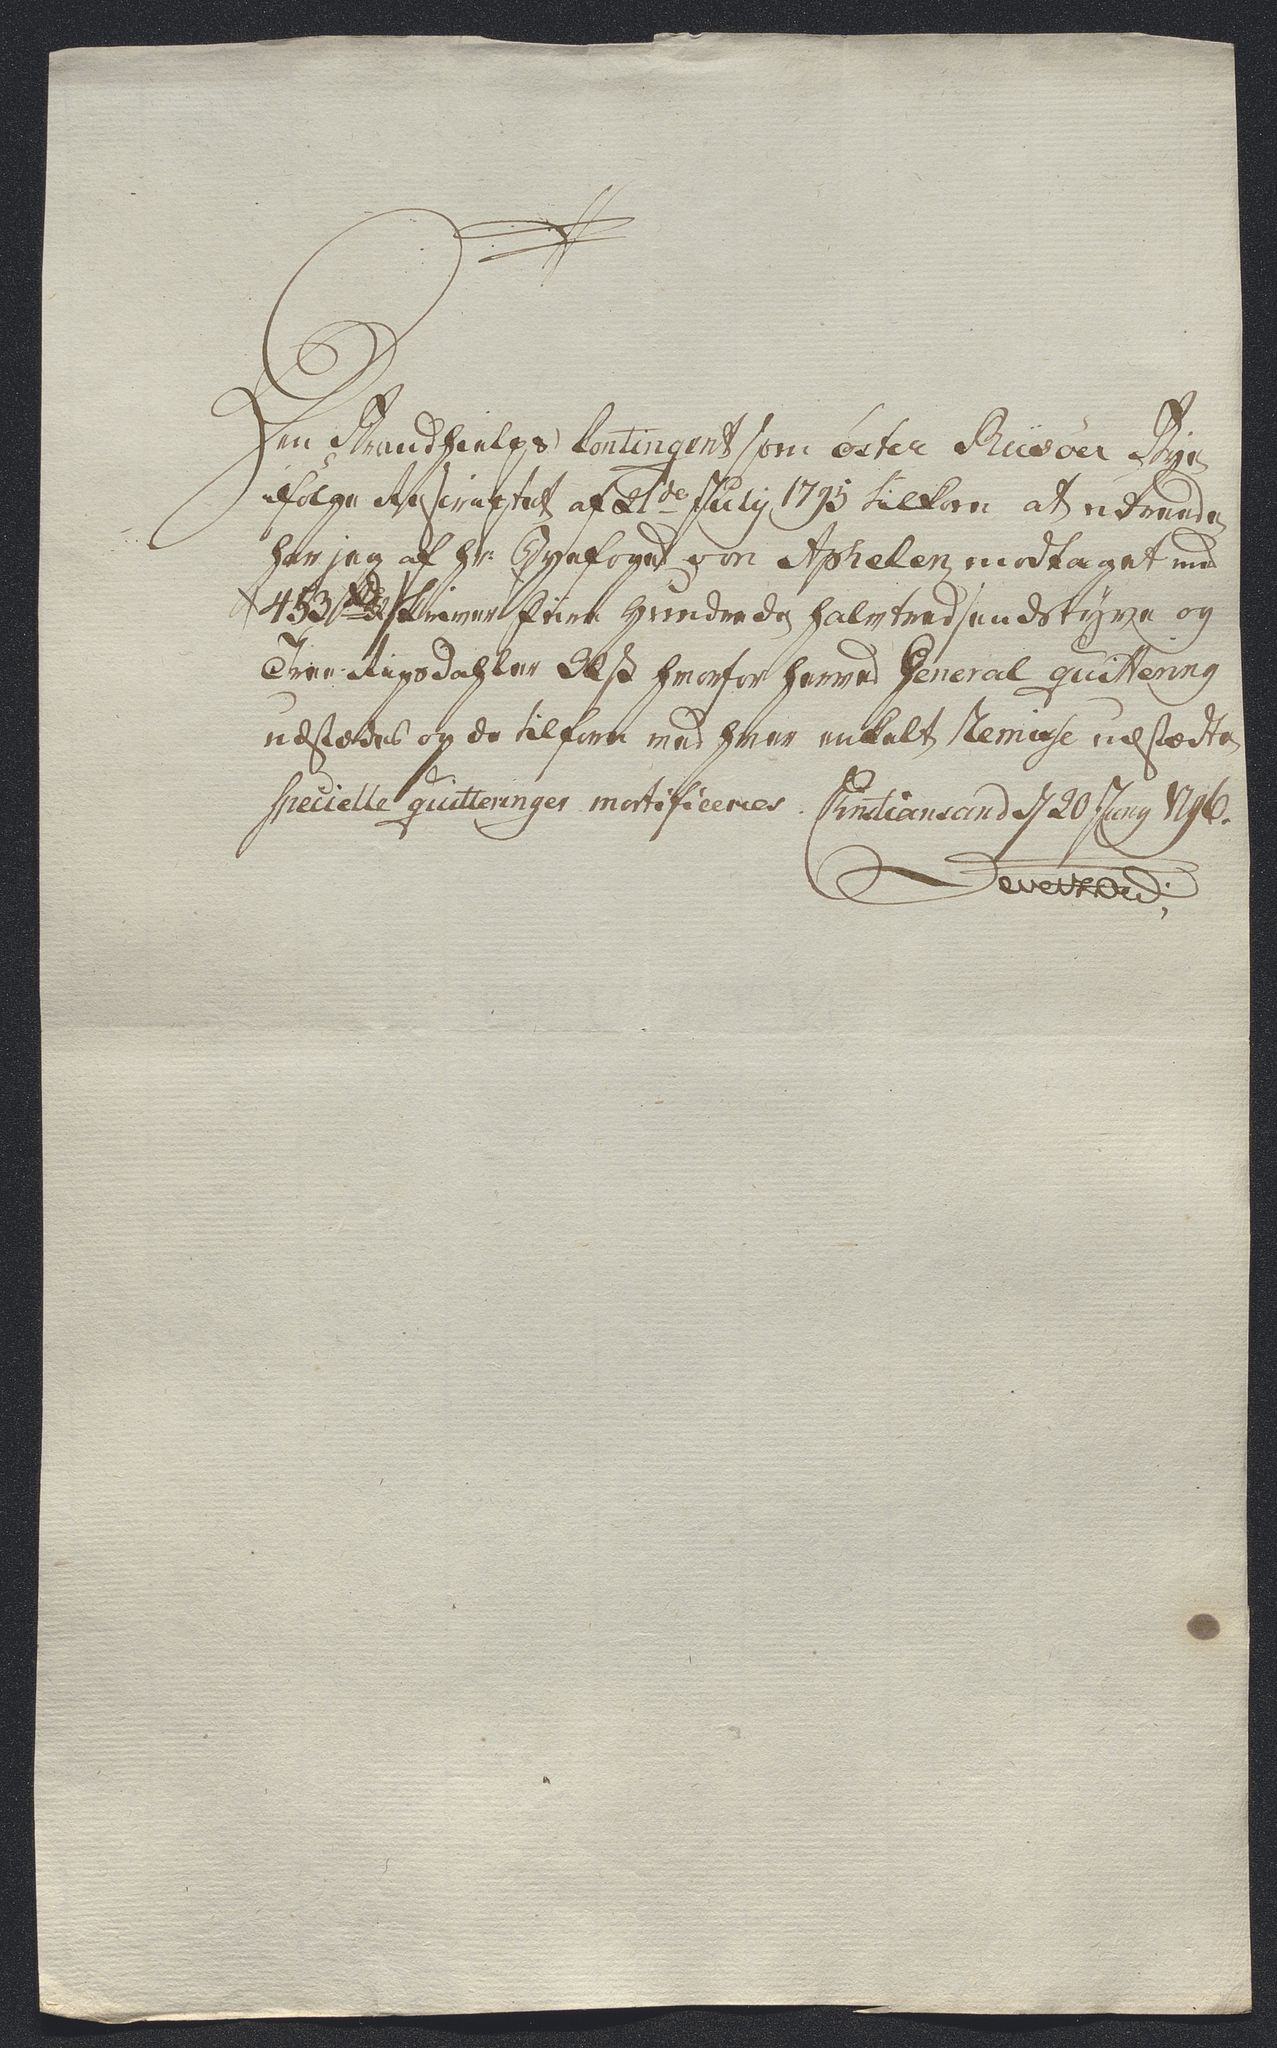 Den Brandhielps Contingent som öster Riisöer Bye
ifölge Rescriptet af 21de July 1795 tilkom at udreede
har jeg af Hr: Byefoged von Aphelen modtaget med
453 rd skriver fiire Hundrede halvtredsindstyve og
Tree Rigsdahler hvorfor herved General quittering
udstædes og de tilforn med hver enkelt Remisse udstædte
specielle quitteringer mortificeres. Christiansand d 20 Juny 1796.